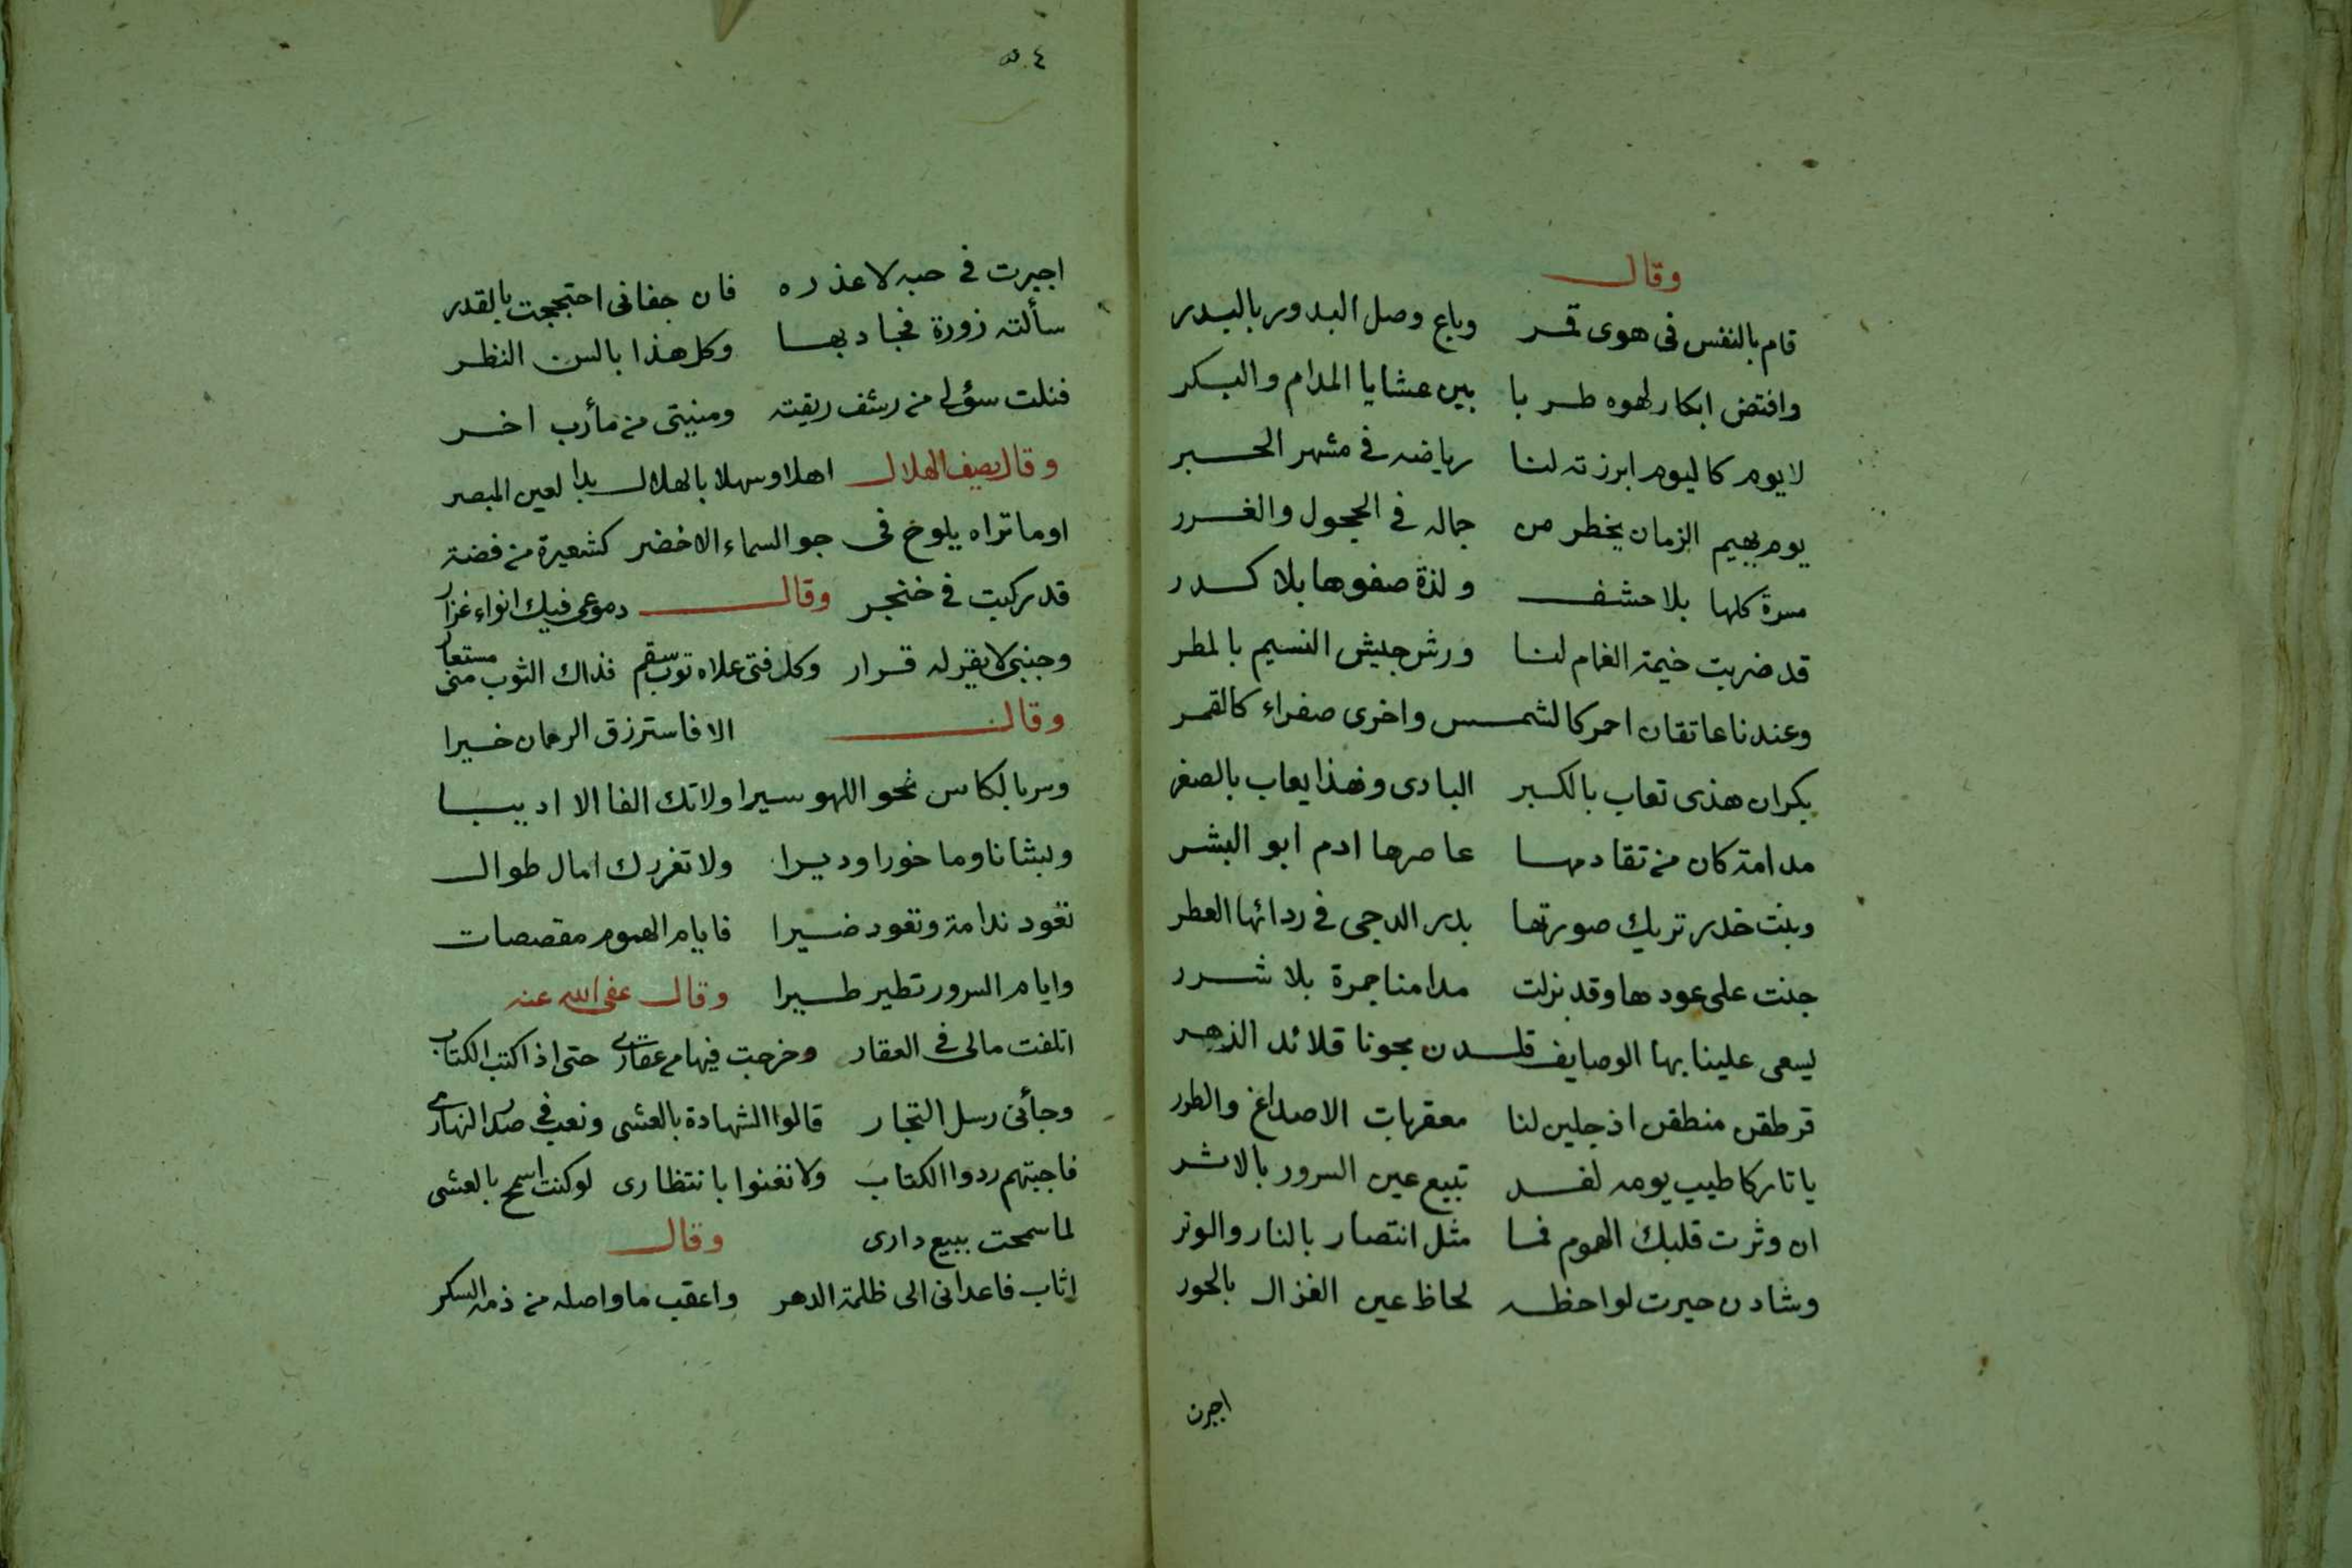 وقال
قام بالنفس فى هوى قمر وباع وصل البدور بالبدر
وافتض ابكار لهوه طربا بين عشايا المدام والبكر
لا يوم كاليوم ابرزته لنا رياضه فى مشهر الحبر
يوم بهيم الزمان يخطر من جماله فى الحجول والغرر
مسرة كلها بلا حشف ولذة صفوها بلا كدر
قد ضربت خيمة الغمام لنا ورش جيش النسيم بالمطر
وعندنا عاتقان احمر كالشمس واخرى صفراء كالقمر
بكران هذى تعاب بالكبر البادى وهذا يعاب بالصغر
مدامة كان من تقادمها عاصرها ادم ابو البشر
وبنت خدر تريك صورتها بدر الدجى فى ردائها العطر
جنت على عودها وقد بزلت مدامنا جمرة بلا شرر
يسعى علينا بها الوصايف قلدن مجونا قلائد الذهر
قرطقن منطقن اذ جلين لنا معقربات الاصداغ والطرر
يا تاركا طيب يومه لغد تبيع عين السرور بالاثر
ان وثرت قلبك الهموم فما مثل انتصار بالنار والوتر
وشادن حيرت لواحظه لحاظ عين الغزال بالحور
اجرت
٥٠٤
اجبرت فى حبه لاعذره فان جفانى احتججت بالقدر
سألته زورة فجاد بها وكل هذا بالسن النظر
فنلت سؤلى من رشف ريقته ومنيتى من مأرب اخر
وقال يصف الهلال اهلا وسهلا بالهلال بدا لعين المبصر
اوما تراه يلوح فى جو السماء الاخضر كشعيرة من فضة
قد ركبت فى خنجر وقال دموعى فيك انواء غزار
وجنبى لا يقر له قرار وكل فتى علاه ثوب سقم فذاك الثوب منى مستعار
وقال الا فاسترزق الرحمان خيرا
وسر بالكاس نحو اللهو سيرا ولا تك الفا الا اديبا
وبشانا وما خورا وديرا ولا تغررك امال طوال
تقود ندامة وتقود ضيرا فايام الهموم مقصصات
وايام السرور تطير طيرا وقال عفى الله عنه
اتلفت مالى فى العقار وخرجت فيها من عقارى حتى اذا كتب الكتاب
وجأنى رسل التجار قالوا الشهادة بالعشى ونعب فى صدر النهار
فاجبتهم ردوا الكتاب ولا تغنوا بانتظارى لو كنت اسمح بالعشى
لما سمحت ببيع دارى وقال
اثاب فاعدانى الى ظلمة الدهر واعقب ما واصله من ذمه السكر